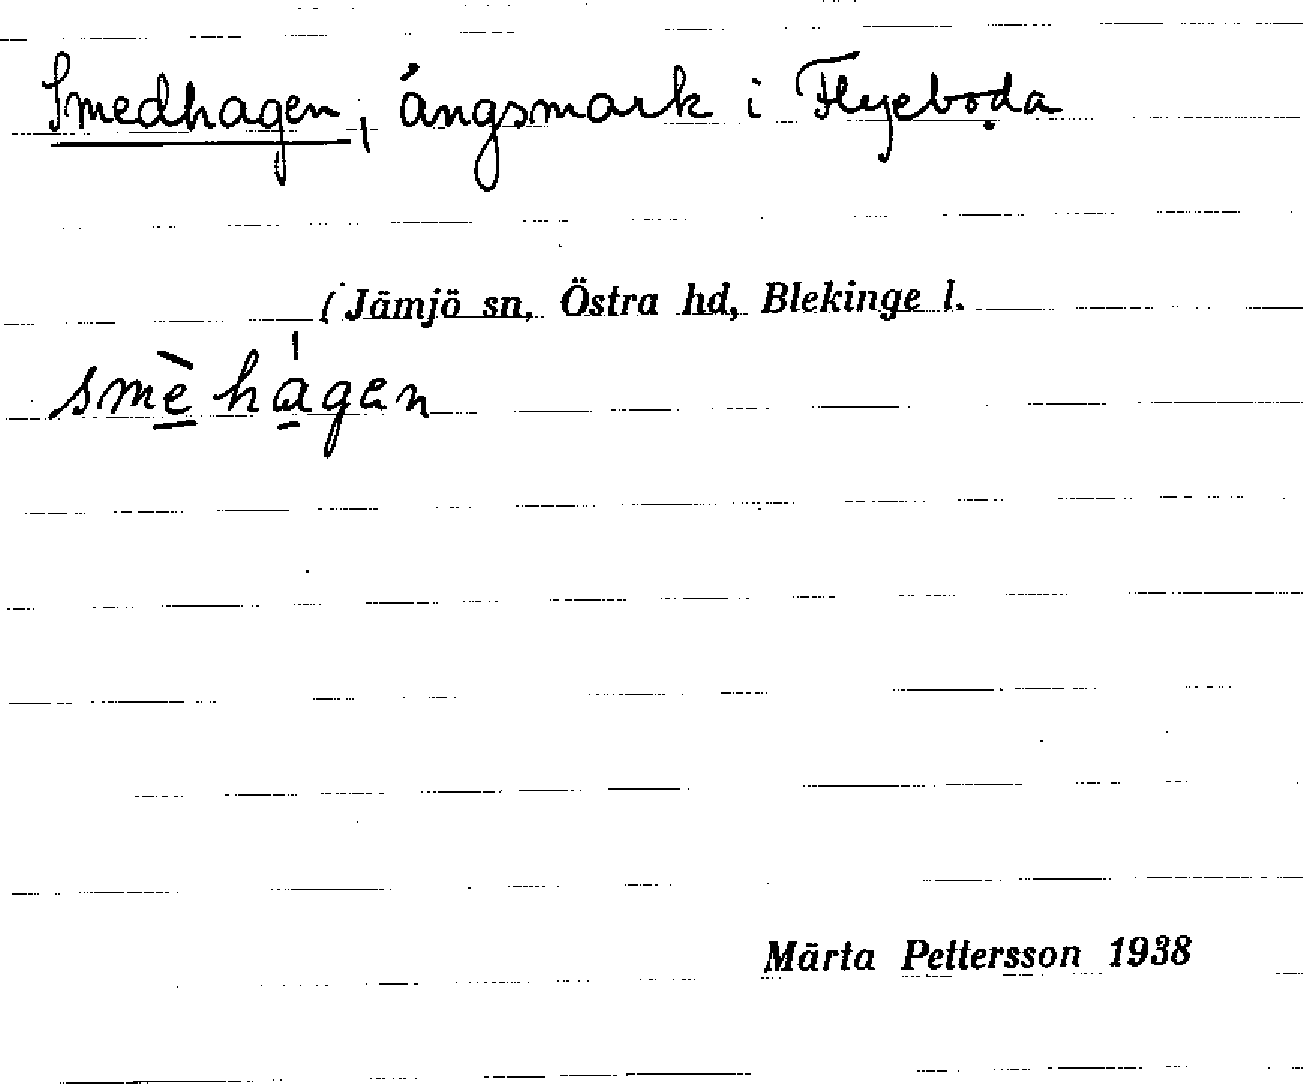 Smedhagen, ängsmark i Flyeboda
(Jämjö sn, Östra hd, Blekinge l.
smè hágen
Märta Pettersson 1938